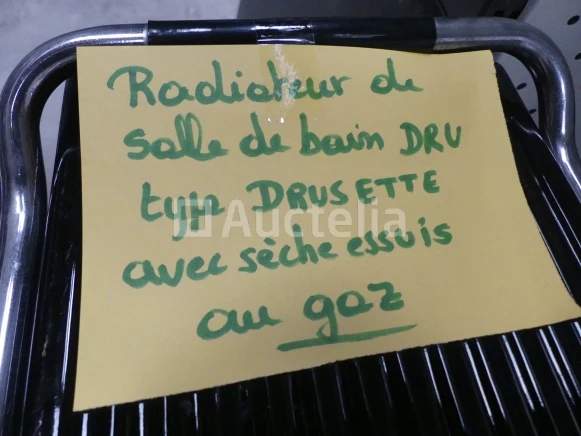 Radiateur de
salle de bain DRU
type DRUSETTE
Auctelia
avec sèche essuis
au gaz